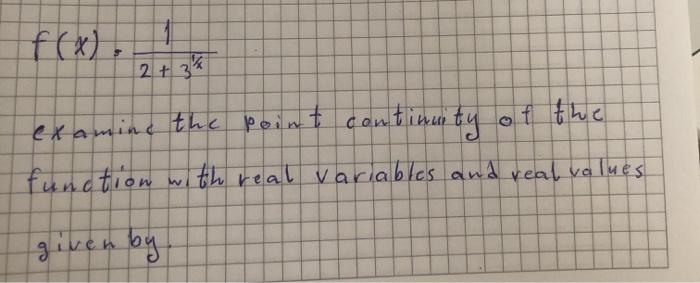 f(x) = 1 / (2 + 3^(1/x))
examine the point continuity of the
function with real variables and real values
given by.